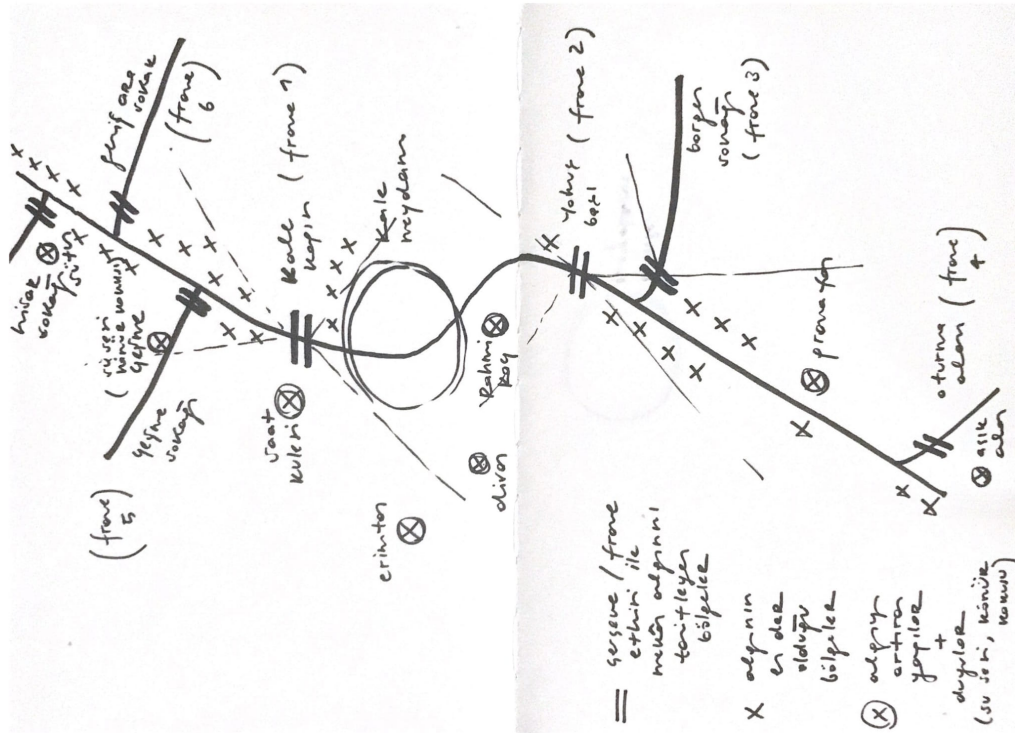 hisar
sokağı
sütun
şerif are
sokak
(frame
6)
(su sesi
kömür kokusu)
çeşme
çeşme
sokağı
(frame
5)
Kale
kapısı
(frame 1)
saat
kulesi
Kale
meydanı
erimtan
divan
Rahmi
Koç
yokuş
başı
(frame 2)
sokağı
(frame 3)
oturma
alanı
(frame
4)
açık
alan
çerçeve / frame
etkisi ile
mekân algısını
tarifleyen
bölgeler
x algının
en dar
olduğu
bölgeler
algıyı
artıran
yapılar
+
duyular
(su sesi, kömür
kokusu)